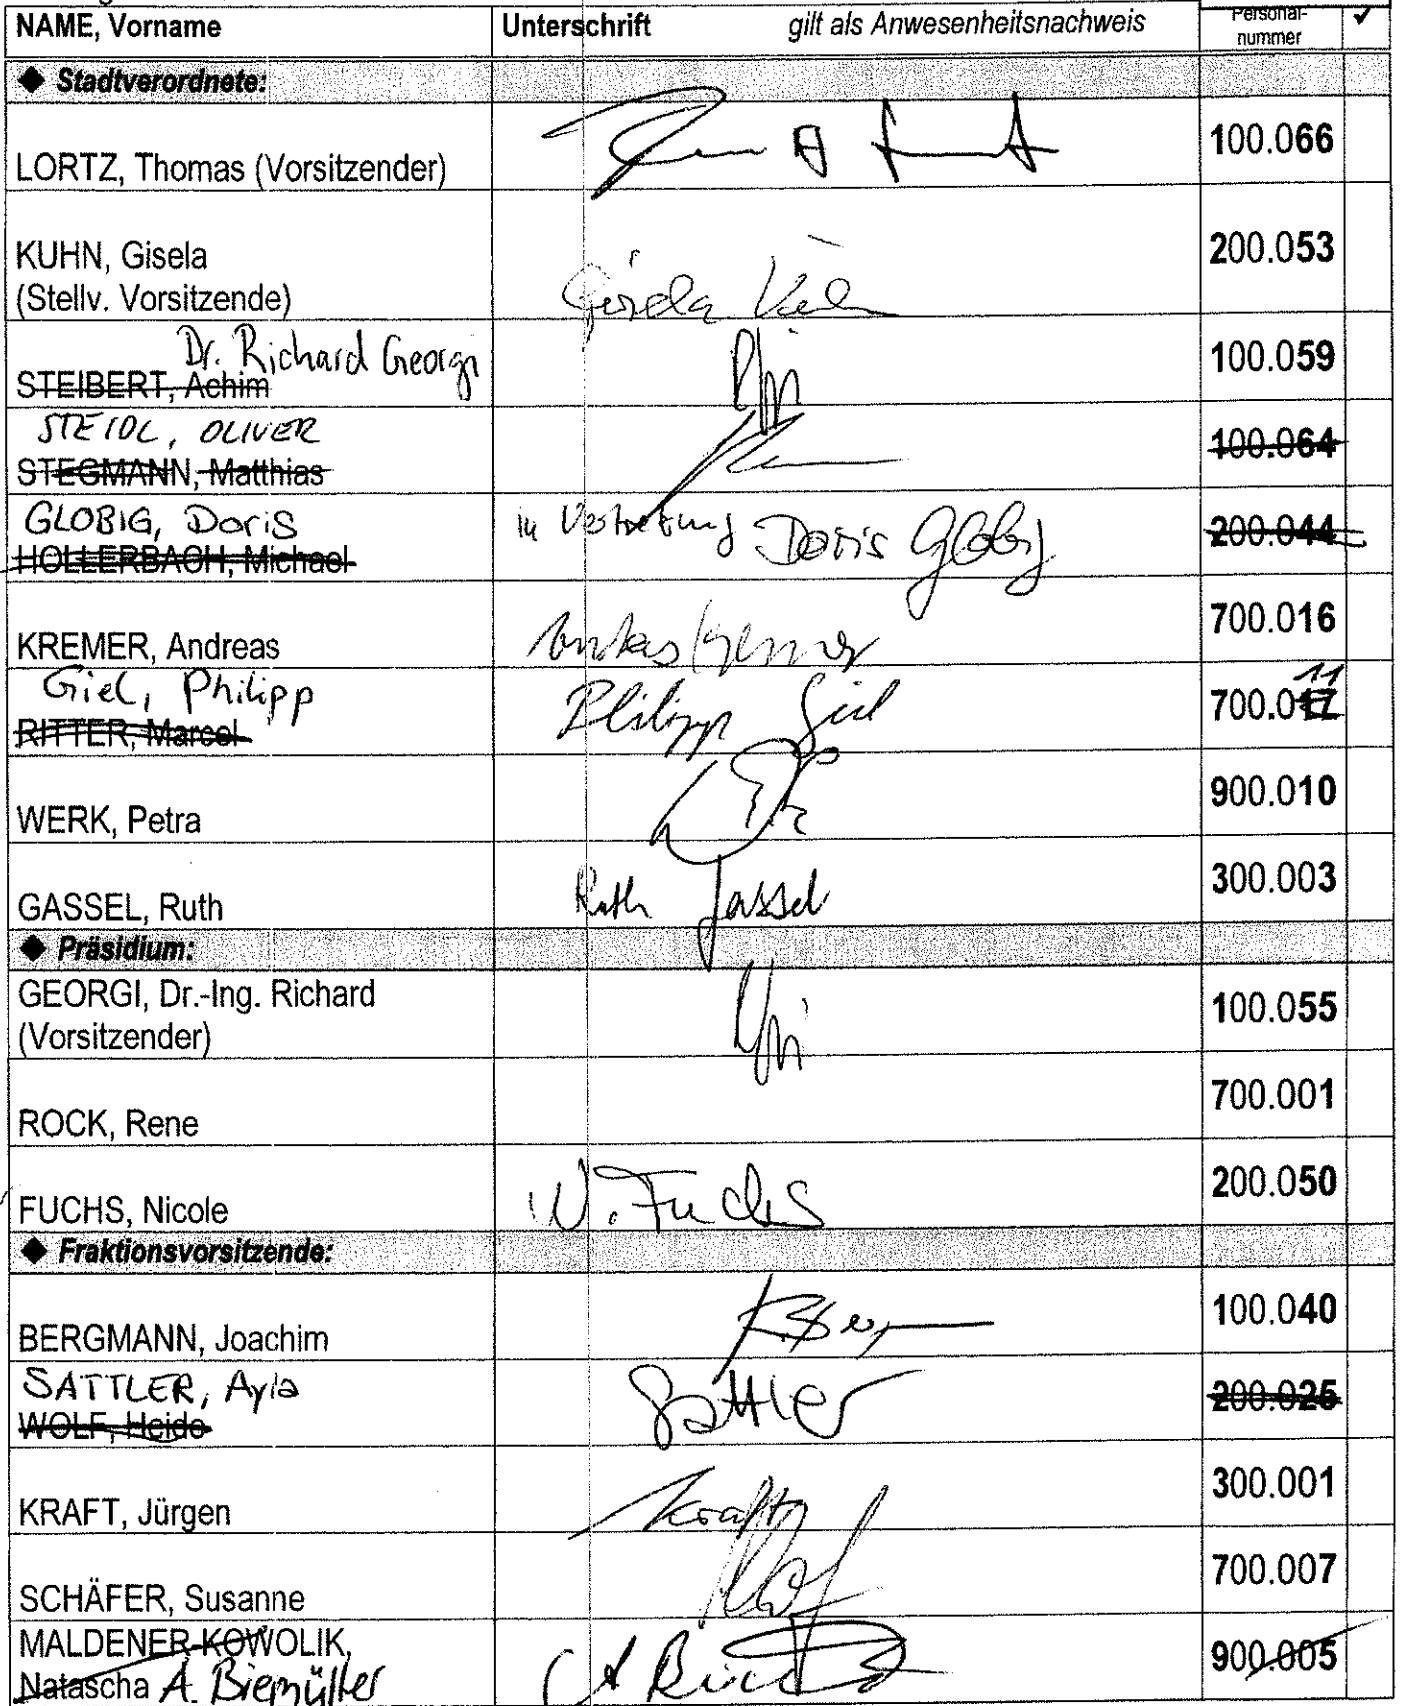 NAME, Vorname Unterschrift gilt als Anwesenheitsnachweis Personal-
nummer ✓
◆ Stadtverordnete:
LORTZ, Thomas (Vorsitzender) 100.066
KUHN, Gisela
(Stellv. Vorsitzende) Gisela Kuhn 200.053
Dr. Richard Georgi
STEIBERT, Achim 100.059
STEIDL, OLIVER
STEGMANN, Matthias 100.064
GLOBIG, Doris
HOLLERBACH, Michael in Vertretung Doris Globig 200.044
KREMER, Andreas Andreas Kremer 700.016
Giel, Philipp
RITTER, Marcel Philipp Giel 700.017 11
WERK, Petra 900.010
GASSEL, Ruth Ruth Gassel 300.003
◆ Präsidium:
GEORGI, Dr.-Ing. Richard
(Vorsitzender) 100.055
ROCK, Rene 700.001
FUCHS, Nicole N. Fuchs 200.050
◆ Fraktionsvorsitzende:
BERGMANN, Joachim 100.040
SATTLER, Ayla
WOLF, Heide Sattler 200.025
KRAFT, Jürgen Kraft 300.001
SCHÄFER, Susanne 700.007
MALDENER-KOWOLIK,
Natascha A. Biemüller 900.005